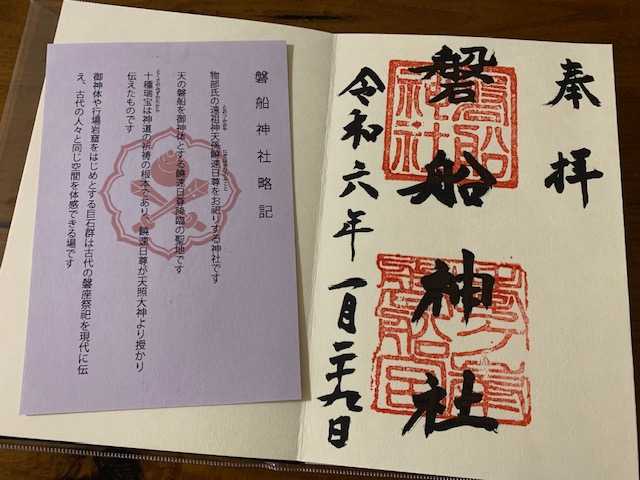 奉拝
磐船神社
令和六年一月二十九日
磐船神社略記
物部氏の遠祖神天孫饒速日尊をお祀りする神社です
天の磐船を御神体とする饒速日尊降臨の聖地です
十種瑞宝は神道の祈祷の根本であり、饒速日尊が天照大神より授かり
伝えたものです
御神体や行場岩窟をはじめとする巨石群は古代の磐座祭祀を現代に伝
え、古代の人々と同じ空間を体感できる場です